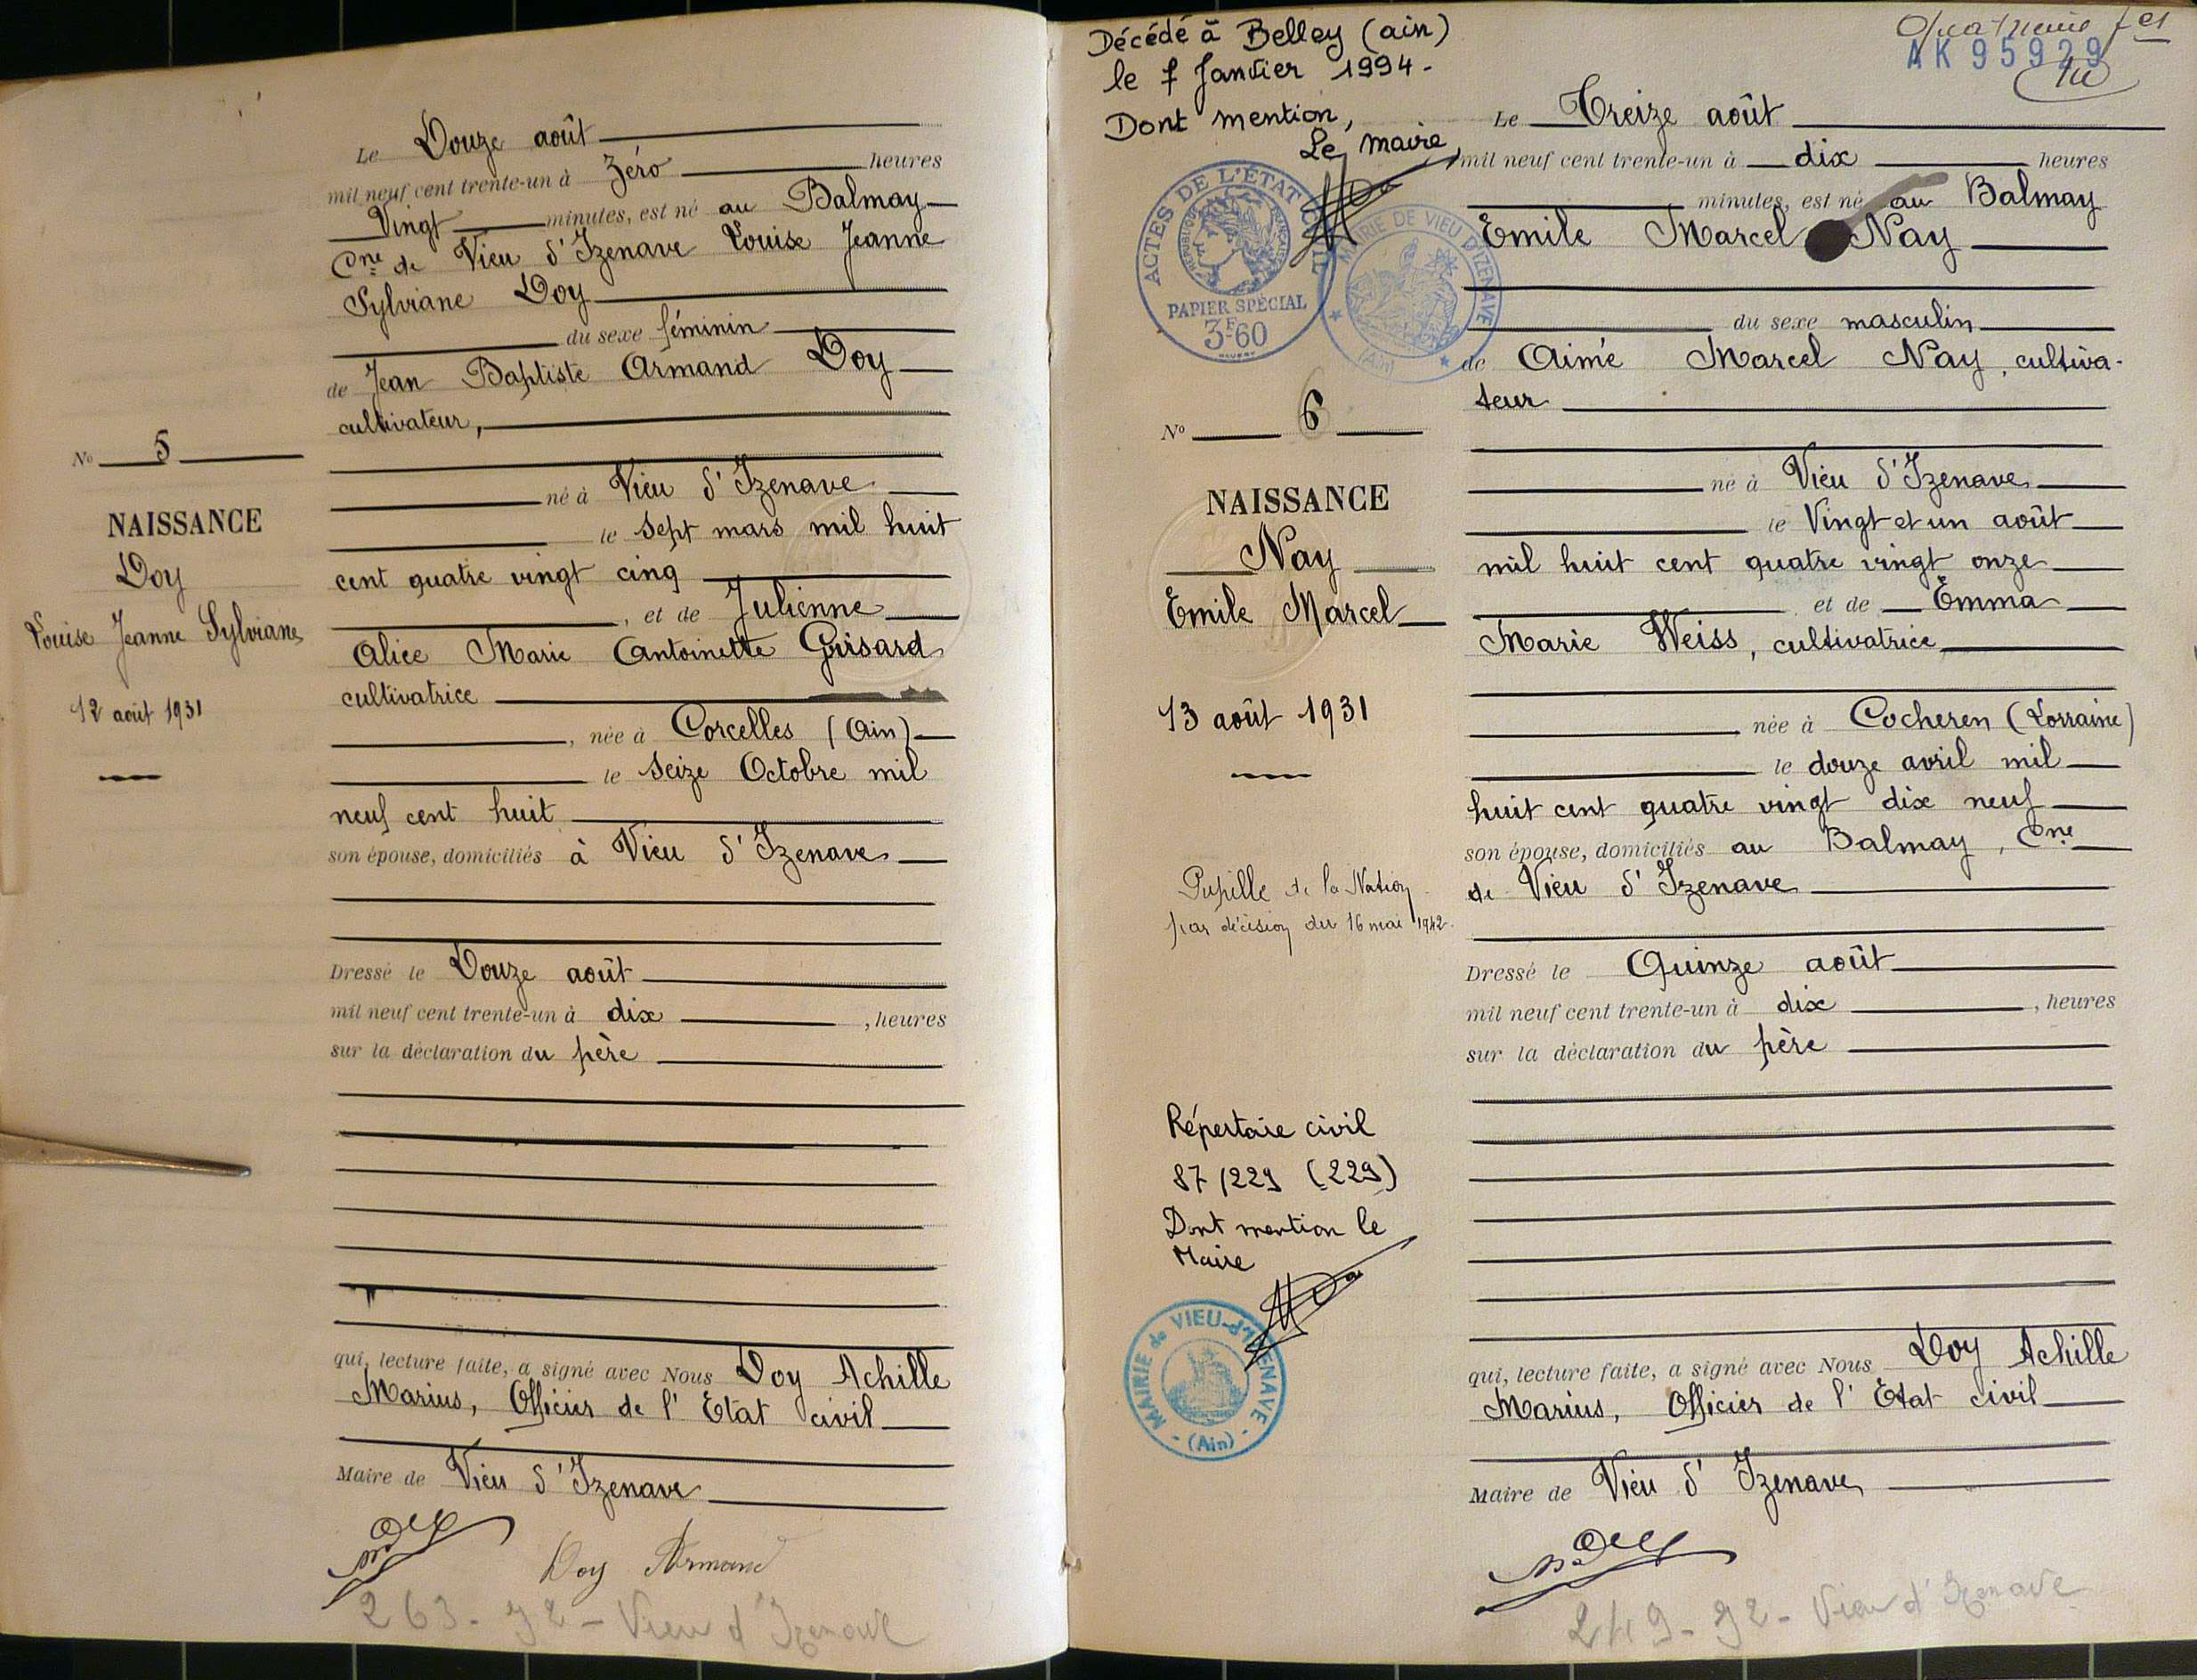 Le Douze août
mil neuf cent trente-un à Zéro heures
Vingt minutes, est né au Balmay
Cne de Vieu d'Izenave Louise Jeanne
Sylviane Doy
du sexe féminin
de Jean Baptiste Armand Doy
cultivateur,
né à Vieu d'Izenave
le sept mars mil huit
cent quatre vingt cinq
, et de Julienne
Alice Marie Antoinette Guisard
cultivatrice
, née à Corcelles (Ain)
le seize Octobre mil
neuf cent huit
son épouse, domiciliés à Vieu d'Izenave
Dressé le Douze août
mil neuf cent trente-un à dix , heures
sur la déclaration du père
qui, lecture faite, a signé avec Nous Doy Achille
Marius, Officier de l'Etat civil
Maire de Vieu d'Izenave
Doy Armand
263 - 92 - Vieu d'Izenave
No 5
NAISSANCE
Doy
Louise Jeanne Sylviane
12 août 1931
Décédé à Belley (ain)
le 7 Janvier 1994 -
Dont mention,
Le maire
ACTES DE L'ÉTAT CIVIL
RÉPUBLIQUE FRANÇAISE
PAPIER SPÉCIAL
3F60
MAIRIE DE VIEU D'IZENAVE
(Ain)
No 6
NAISSANCE
Nay
Emile Marcel
13 août 1931
Pupille de la Nation
par décision du 16 mai 1942.
Répertoire civil
87/229 (229)
Dont mention le
Maire
MAIRIE de VIEU-d'IZENAVE
- (Ain) -
AK 95929
Le Treize août
mil neuf cent trente-un à dix heures
minutes, est né au Balmay
Emile Marcel Nay
du sexe masculin
de Aimé Marcel Nay, cultiva-
teur
né à Vieu d'Izenave
le Vingt et un août
mil huit cent quatre vingt onze
et de Emma
Marie Weiss, cultivatrice
née à Cocheren (Lorraine)
le douze avril mil
huit cent quatre vingt dix neuf
son épouse, domiciliés au Balmay, Cne
de Vieu d'Izenave
Dressé le Quinze août
mil neuf cent trente-un à dix , heures
sur la déclaration du père
qui, lecture faite, a signé avec Nous Doy Achille
Marius, Officier de l'Etat civil
Maire de Vieu d'Izenave
249 - 92 - Vieu d'Izenave